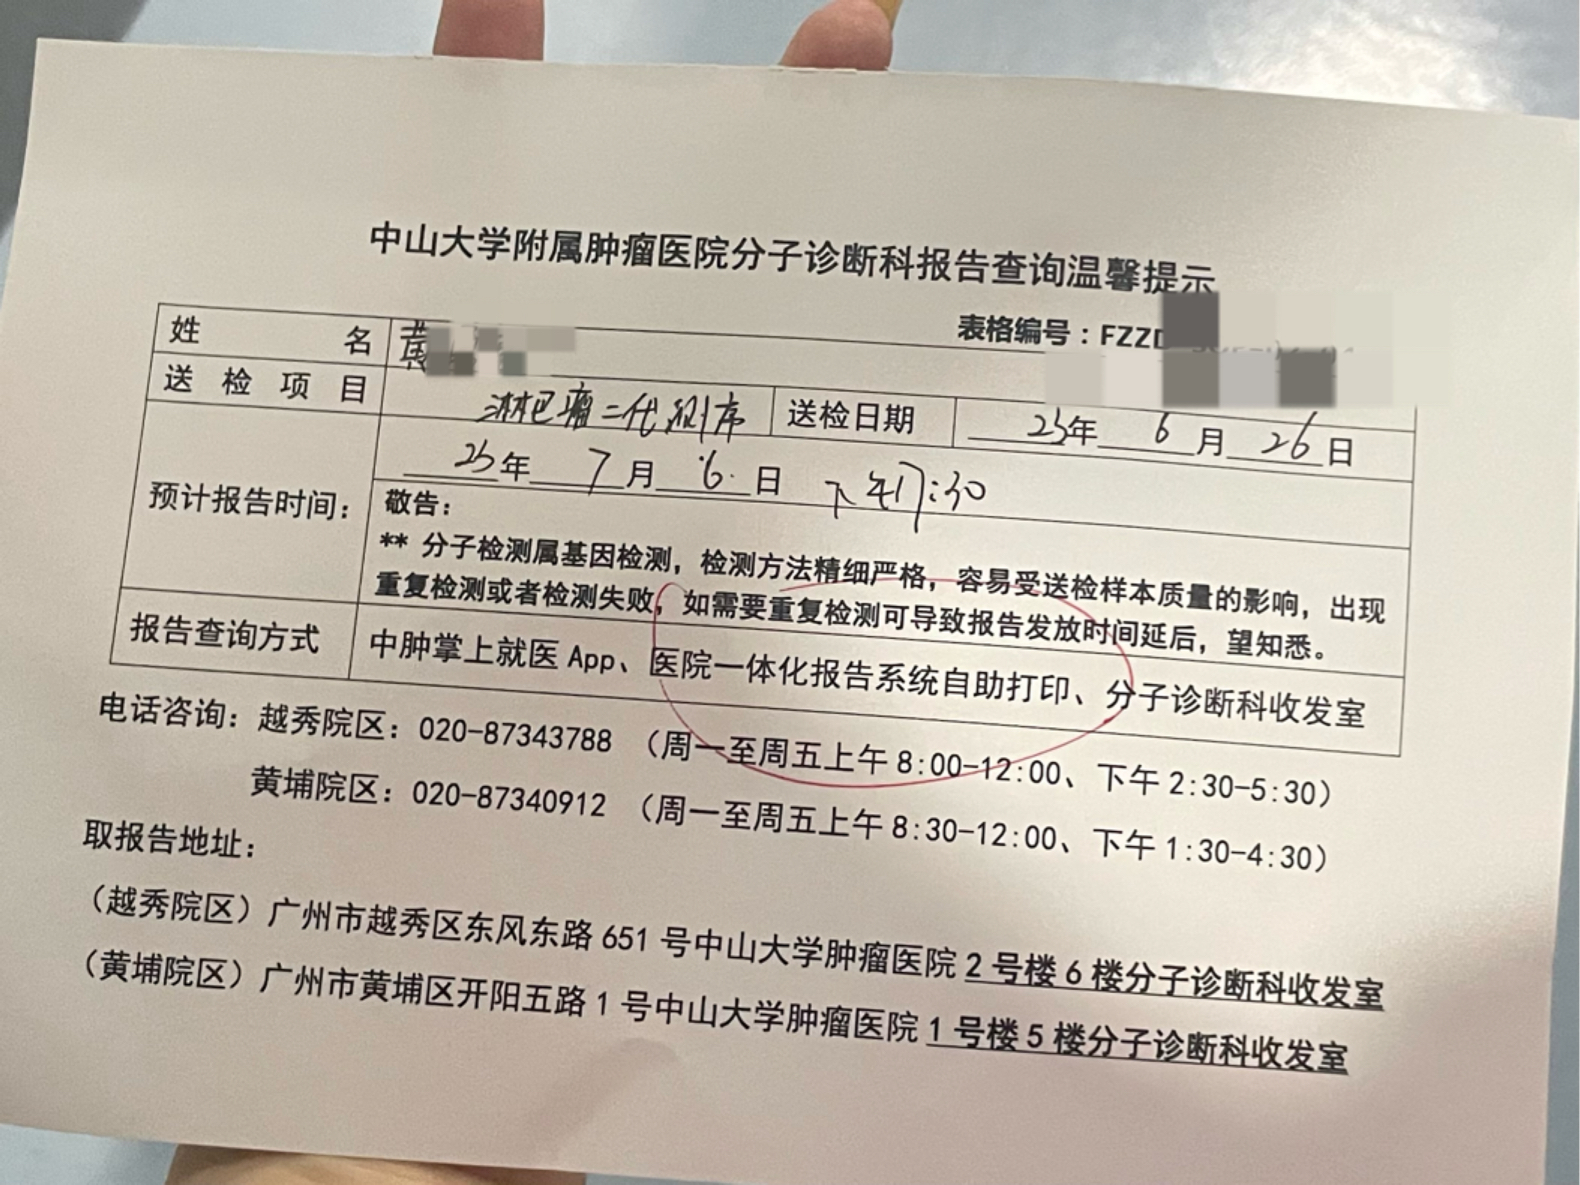 中山大学附属肿瘤医院分子诊断科报告查询温馨提示
表格编号：FZZD
姓名 黄
送检项目 淋巴瘤二代测序 送检日期 25年 6月 26日
预计报告时间： 25年 7月 6日 下午17:30
敬告：
** 分子检测属基因检测，检测方法精细严格，容易受送检样本质量的影响，出现
重复检测或者检测失败，如需要重复检测可导致报告发放时间延后，望知悉。
报告查询方式 中肿掌上就医 App、医院一体化报告系统自助打印、分子诊断科收发室
电话咨询：越秀院区：020-87343788 （周一至周五上午 8:00-12:00、下午 2:30-5:30）
黄埔院区：020-87340912 （周一至周五上午 8:30-12:00、下午 1:30-4:30）
取报告地址：
（越秀院区）广州市越秀区东风东路 651 号中山大学肿瘤医院 2 号楼 6 楼分子诊断科收发室
（黄埔院区）广州市黄埔区开阳五路 1 号中山大学肿瘤医院 1 号楼 5 楼分子诊断科收发室